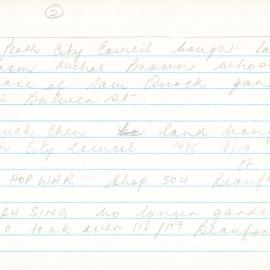 2
Perth City Council bought la
from Michal Brown whoo
of Sam Quock gar
2 Bulwer St
uck Chen land
h City Council 1915 18/19
St
HOP WAR Shop 304 Beaufor
AH SING no longer garde
C. took over 118/119 Beaufor